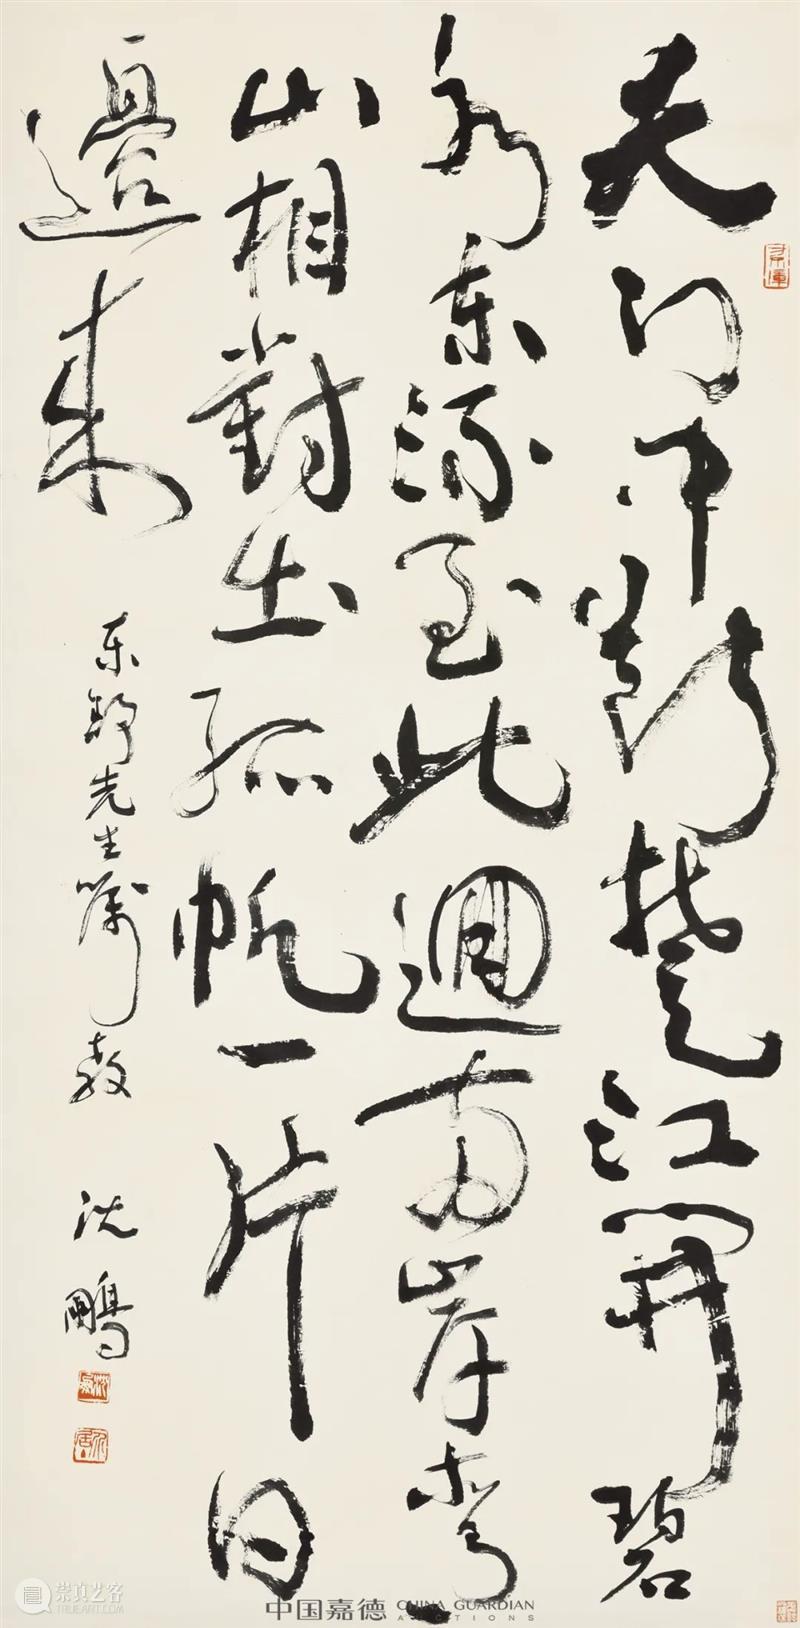 天门中断楚江開碧
水东流至此迴两岸青
山相對出孤帆一片日
邊来
东舒先生嘱教
沈鵬
崇真艺客
WWW.TRUEART.COM
中国嘉德 CHINA GUARDIAN
AUCTIONS